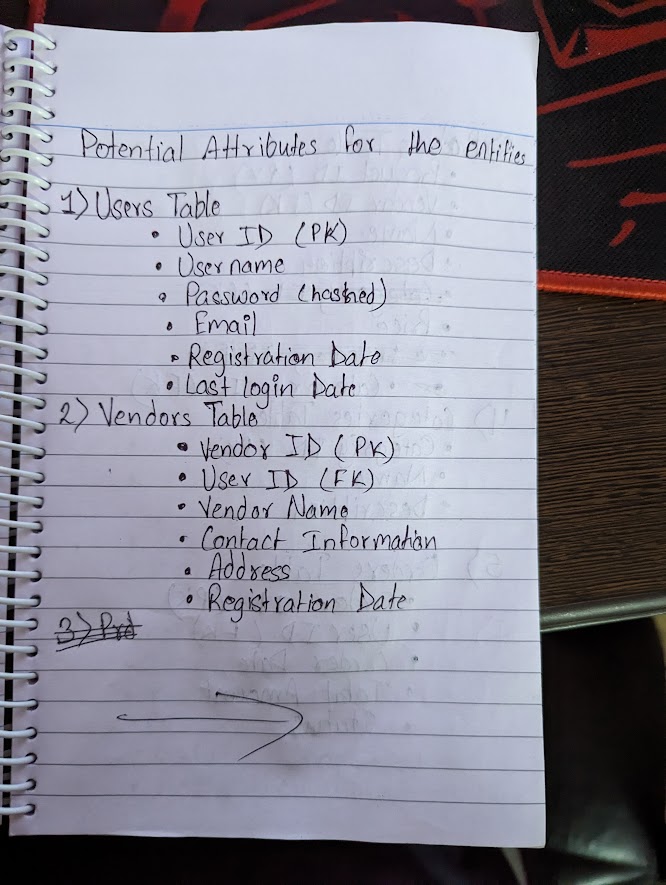 Potential Attributes for the entities
1) Users Table
• User ID (PK)
• Username
• Password (hashed)
• Email
• Registration Date
• Last login Date
2) Vendors Table
• Vendor ID (PK)
• User ID (FK)
• Vendor Name
• Contact Information
• Address
• Registration Date
3) Prd